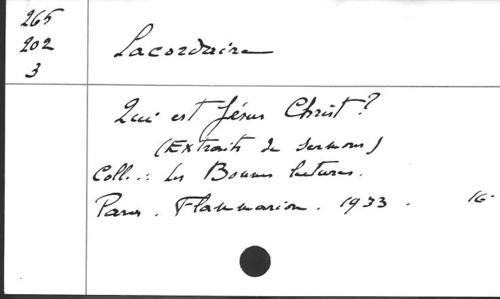 265
202
3
Lacordaire
Qui est Jésus Christ?
(Extraits de sermons)
Coll. : Les Bonnes lectures.
Paris. Flammarion. 1933. 16